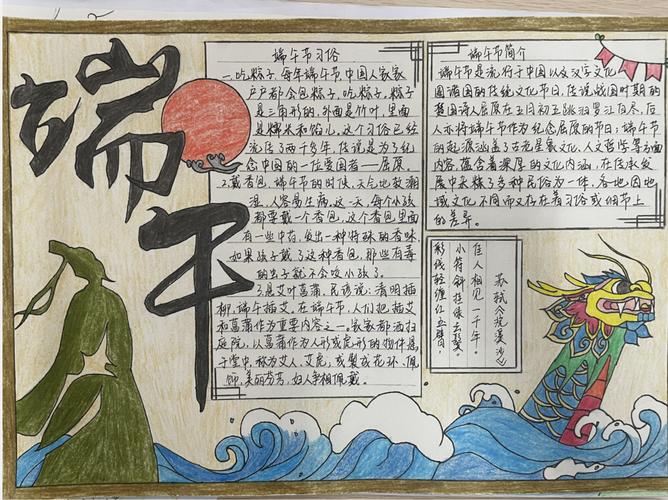 端午
端午节习俗
一.吃粽子,每年端午节,中国人家家
户户都会包粽子,吃粽子,粽子
是三角形的,外面是竹叶,里面
是糯米和馅儿,这个习俗已经
流传了两千多年,传说是为了纪
念中国的一位爱国者——屈原。
2.戴香包,端午节的时候,天气比较潮
湿,人容易生病,这一天,每个小孩
都要戴一个香包,这个香包里面
有一些中药,发出一种特殊的香味,
如果孩子戴了这种香包,那些有毒
的虫子就不会咬小孩了。
3.悬艾叶菖蒲,民谚说:清明插
柳,端午插艾。在端午节,人们把插艾
和菖蒲作为重要内容之一。家家都洒扫
庭院,以菖蒲作为人形或虎形的物件悬
于堂中,称为艾人,艾虎;或制成花环、佩
饰,美丽芬芳,妇人争相佩戴。
端午节简介
端午节是流行于中国以及汉字文化
圈诸国的传统文化节日,传说战国时期的
楚国诗人屈原在五月初五跳汨罗江自尽,后
人亦将端午节作为纪念屈原的节日;端午节
的起源涵盖了古老星象文化,人文哲学等方面
内容,蕴含着深厚的文化内涵,在传承发
展中杂糅了多种民俗为一体,各地因地
域文化不同而又存在着习俗或细节上
的差异。
苏轼《浣溪沙》
佳人相见一千年。
小符斜挂绿云鬟。
彩线轻缠红玉臂,